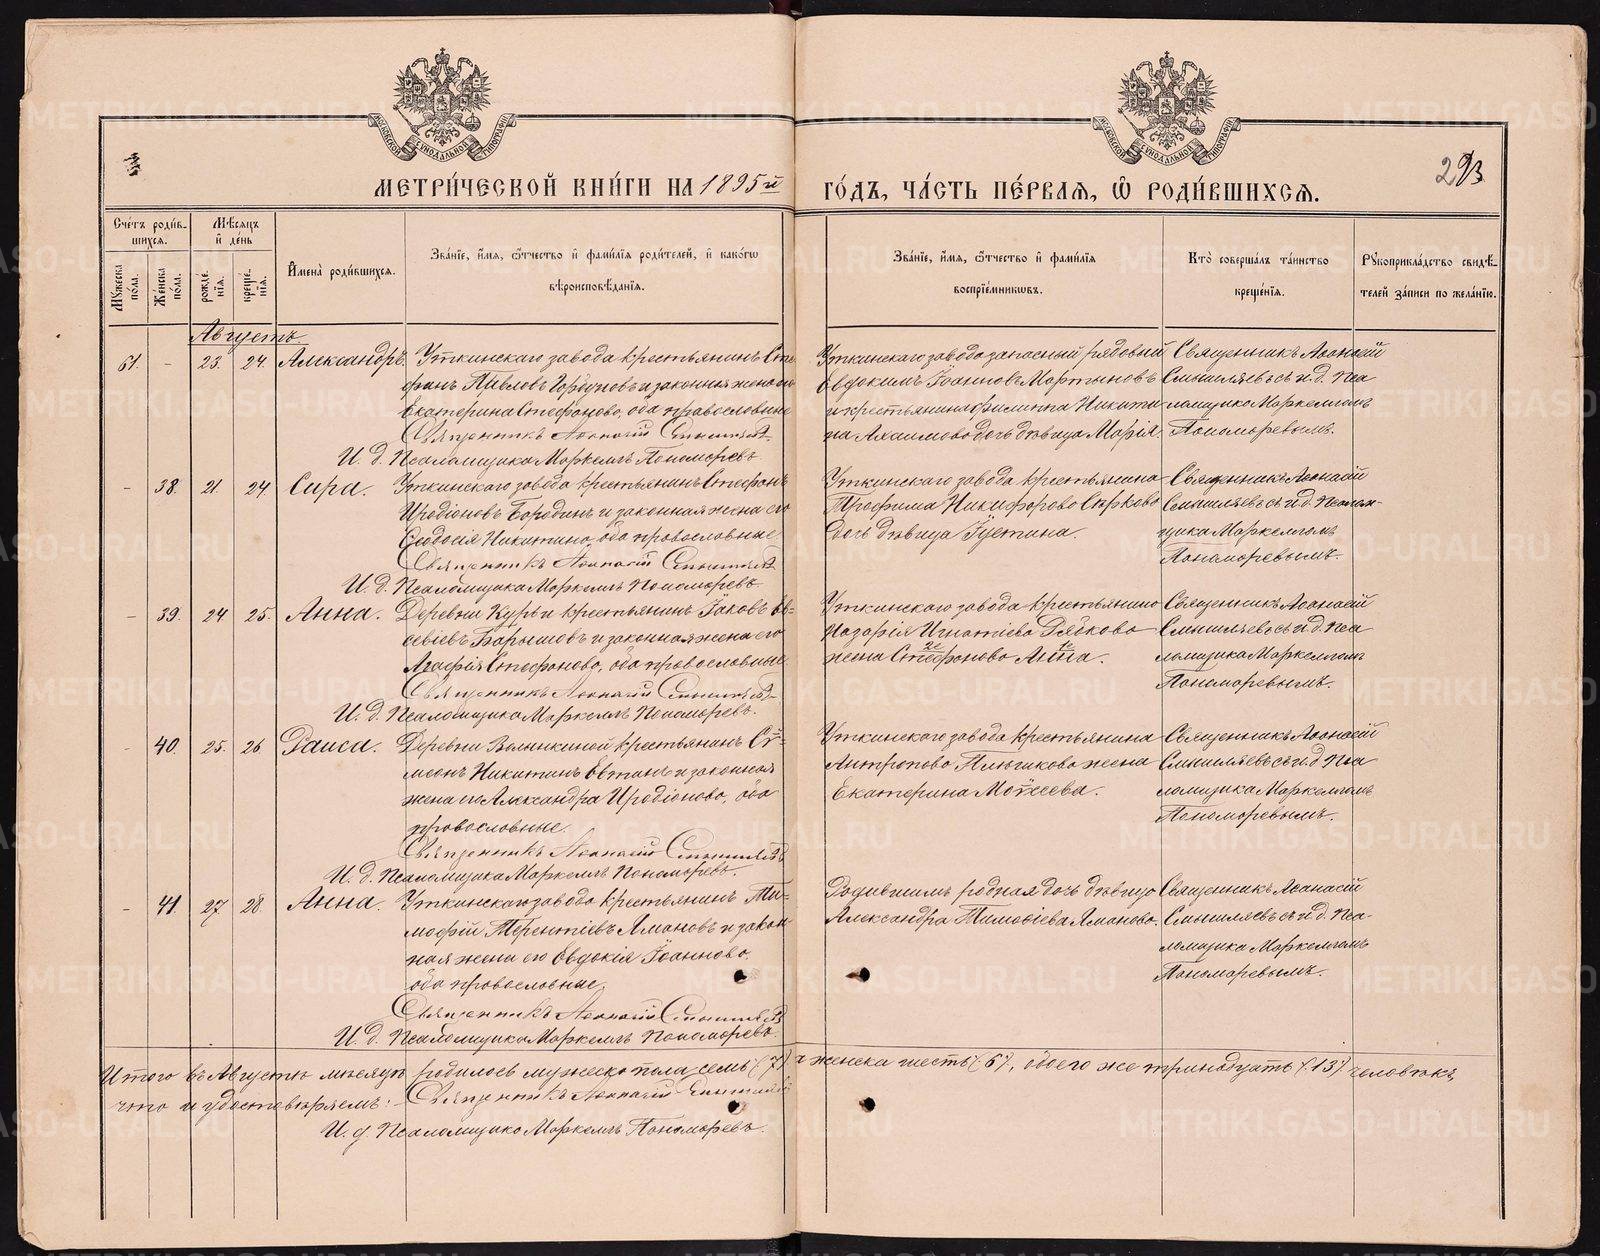 МЕТРИ́ЧЕСКОЙ КНИ́ГИ НА 1895й ГО́ДЪ, ЧА́СТЬ ПЕ́РВАЯ, Ѿ РОДИ́ВШИХСЯ.
МОСКОВСКОЙ СѴНОДАЛЬНОЙ ТИПОГРАФІИ
МОСКОВСКОЙ СѴНОДАЛЬНОЙ ТИПОГРАФІИ
Сче́тъ роди́вшихся.
Му́жеска по́ла.
Же́нска по́ла.
Мѣ́сяцъ и҆ де́нь
рожде́нїя.
креще́нїя.
И҆мена̀ роди́вшихся.
Зва́нїе, и҆́мя, ѻ҆́тчество и҆ фами́лїя роди́телей, и҆ како́гѡ
вѣроисповѣ́данїя.
Зва́нїе, и҆́мя, ѻ҆́тчество и҆ фами́лїя
воспрїе́мникѡвъ.
Кто̀ соверша́лъ та́инство
креще́нїя.
Рукоприкла́дство свидѣ́-
телей за́писи по жела́нїю.
Августъ
61. - 23. 24. Александръ.
Уткинскаго завода крестьянинъ Сте-
фанъ Павловъ и законная жена его
Екатерина Стефанова, оба православные
Священникъ Аѳанасій Смышляевъ
И. д. Псаломщика Маркеллъ Пономаревъ
Уткинскаго завода запасный рядовый
Евдокимъ Іоанновъ Мартыновъ
и крестьянина Филиппа Никити-
на дочь дѣвица Марія.
Священникъ Аѳанасій
Смышляевъ съ и. д. Пса-
ломщика Маркелломъ
Пономаревымъ.
- 38. 21. 24. Сира.
Уткинскаго завода крестьянинъ Стефанъ
Иродіоновъ Бородинъ и законная жена его
Никитина, оба православные
Священникъ Аѳанасій Смышляевъ
И. д. Псаломщика Маркеллъ Пономаревъ.
Уткинскаго завода крестьянина
Трофима Никифорова
дочь дѣвица Іустина.
Священникъ Аѳанасій
Смышляевъ съ и. д. Псалом-
щика Маркелломъ
Пономаревымъ.
- 39. 24 25. Анна.
Деревни Курьи крестьянинъ Іаковъ Ев-
севіевъ Барышовъ и законная жена его
Агафія Стефанова, оба православные
Священникъ Аѳанасій Смышляевъ
И. д. Псаломщика Маркеллъ Пономаревъ.
Уткинскаго завода крестьянина
Назарія Игнатіева Рябкова
жена Стефанова Анна.
Священникъ Аѳанасій
Смышляевъ съ и. д. Пса-
ломщика Маркелломъ
Пономаревымъ.
- 40. 25. 26. Раиса.
Деревни Волынкиной крестьянинъ Сѵ-
меонъ Никитинъ Евтинъ и законная
жена его Александра Иродіонова, оба
православные.
Священникъ Аѳанасій Смышляевъ
И. д. Псаломщика Маркеллъ Пономаревъ.
Уткинскаго завода крестьянина
Антропова Плюснкова жена
Екатерина Моѵсеева.
Священникъ Аѳанасій
Смышляевъ съ и. д. Пса-
ломщика Маркелломъ
Пономаревымъ.
- 41. 27 28. Анна.
Уткинскаго завода крестьянинъ Ти-
моѳій Терентіевъ Ямановъ и закон-
ная жена его Евдокія Іоаннова,
оба православные.
Священникъ Аѳанасій Смышляевъ
И. д. Псаломщика Маркеллъ Пономаревъ.
Родившимъ родная дочь дѣвица
Александра Тимоѳіева Яманова.
Священникъ Аѳанасій
Смышляевъ съ и. д. Пса-
ломщика Маркелломъ
Пономаревымъ.
Итого въ Августѣ мѣсяцѣ родилось мужеска пола семь (7), а женска шесть (6), обоего же тринадцать (13) человѣкъ,
что и удостовѣряемъ: Священникъ Аѳанасій Смышляевъ
И. д. Псаломщика Маркеллъ Пономаревъ.
METRIKI.GASO-URAL.RU